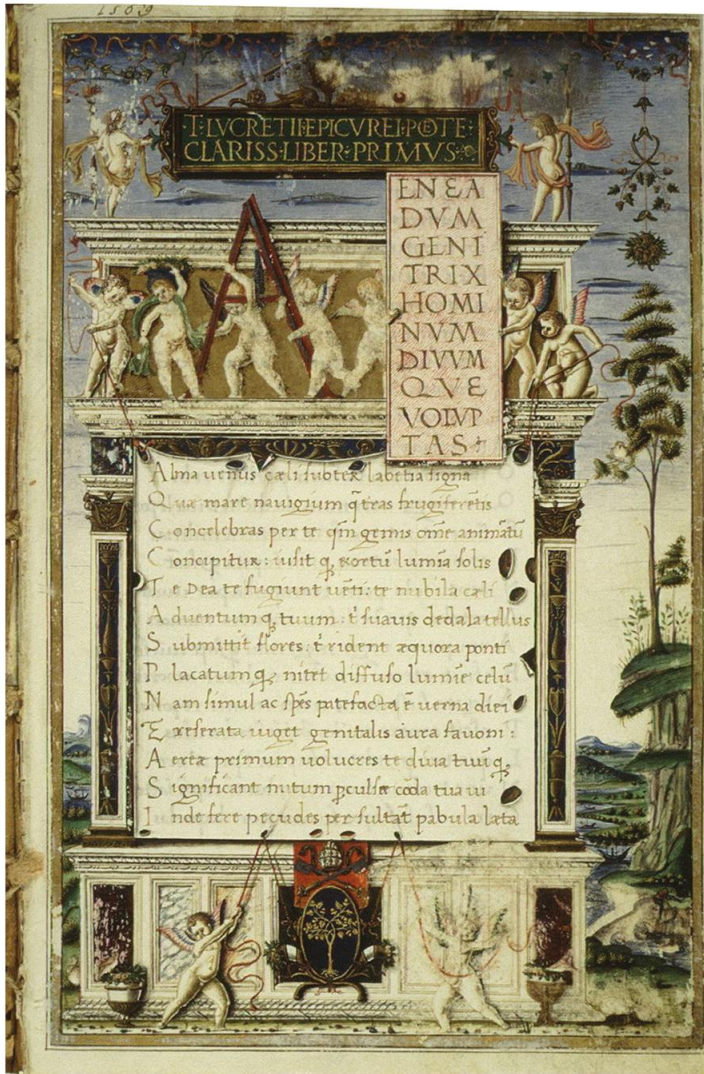 1569
T·LVCRETII·EPICVREI·POETE·
CLARISS·LIBER·PRIMVS·
A
ENEA
DVM
GENI
TRIX
HOMI
NVM
DIVVM
QVE
VOLVP
TAS
Alma uenus cæli subter labētia signa
Quæ mare nauigium q̄ teras frugiferētis
Concelebras per te qm̄ genus om̄e animātū
Concipitur: uisit q; exortū lumīa solis
Te Dea te fugiunt uēti: te nubila cæli
Aduentum q; tuum: t̄ suauis dedala tellus
Submittit flores: t̄ rident æquora ponti
Placatum q; nitet diffuso lumīe celū
Nam simul ac spēs patefacta ē uerna diei
Exreserata uiget genitalis aura fauoni:
Aereæ primum uolucres te diua tuū q;
Significant initum perculsæ corda tua ui
Inde fere pecudes persultāt pabula læta